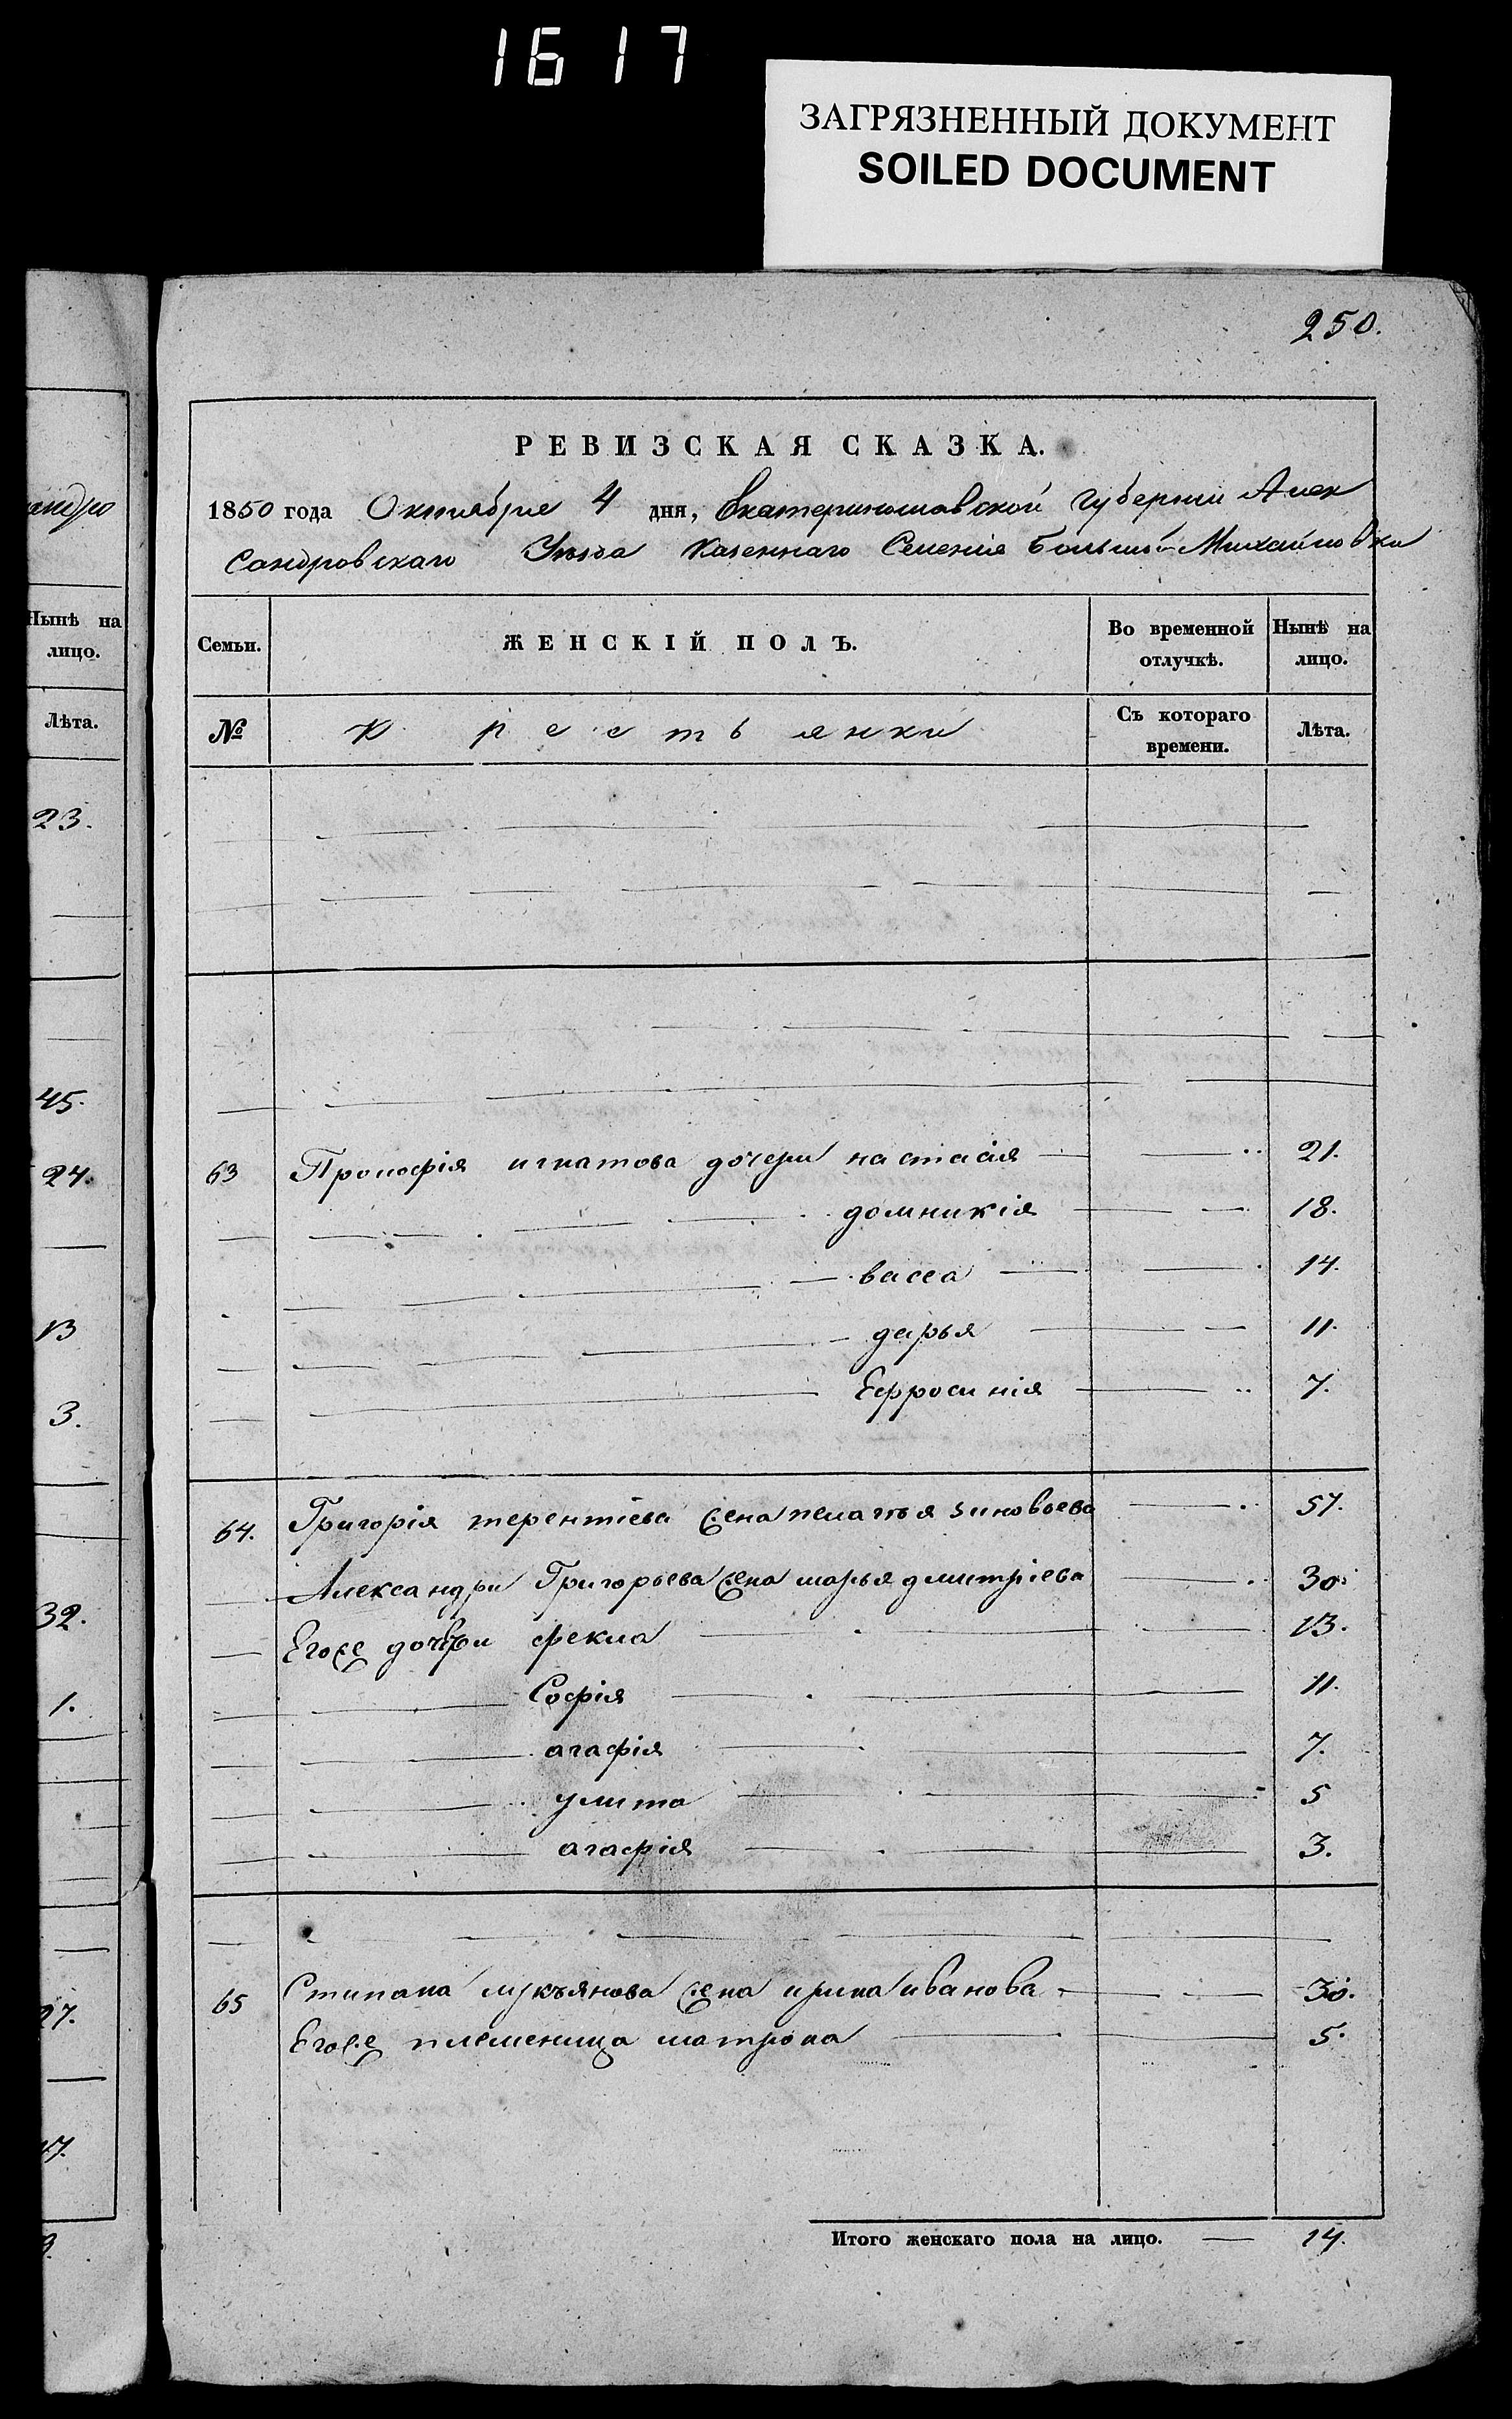 1617
ЗАГРЯЗНЕННЫЙ ДОКУМЕНТ
SOILED DOCUMENT
андро
Нынѣ на
лицо.
Лѣта.
23.
45.
24.
13
3.
32.
1.
27.
47.
9.
250.
РЕВИЗСКАЯ СКАЗКА.
1850 года Октября 4 дня, Екатеринославской Губернии Алек
сандровскаго Уезда Казеннаго Селения Большой Михайловки
Семьи. ЖЕНСКІЙ ПОЛЪ. Во временной отлучкѣ. Нынѣ на лицо.
№ Крестьянки Съ котораго времени. Лѣта.
63 Прокофія игнатова дочери настасія 21.
домникія 18.
васса 14.
дарья 11.
Ефросинія 7.
64. Григорія терентіева жена пелагѣя зиновьева 57.
Александра Григорьева жена марья дмитріева 30.
Егоже дочери фекла 13.
Софія 11.
агафія 7.
улита 5
агафія 3.
65 Стипана лукъянова жена ирина иванова 30.
Егоже племеница матрона 5.
Итого женскаго пола на лицо. 14.